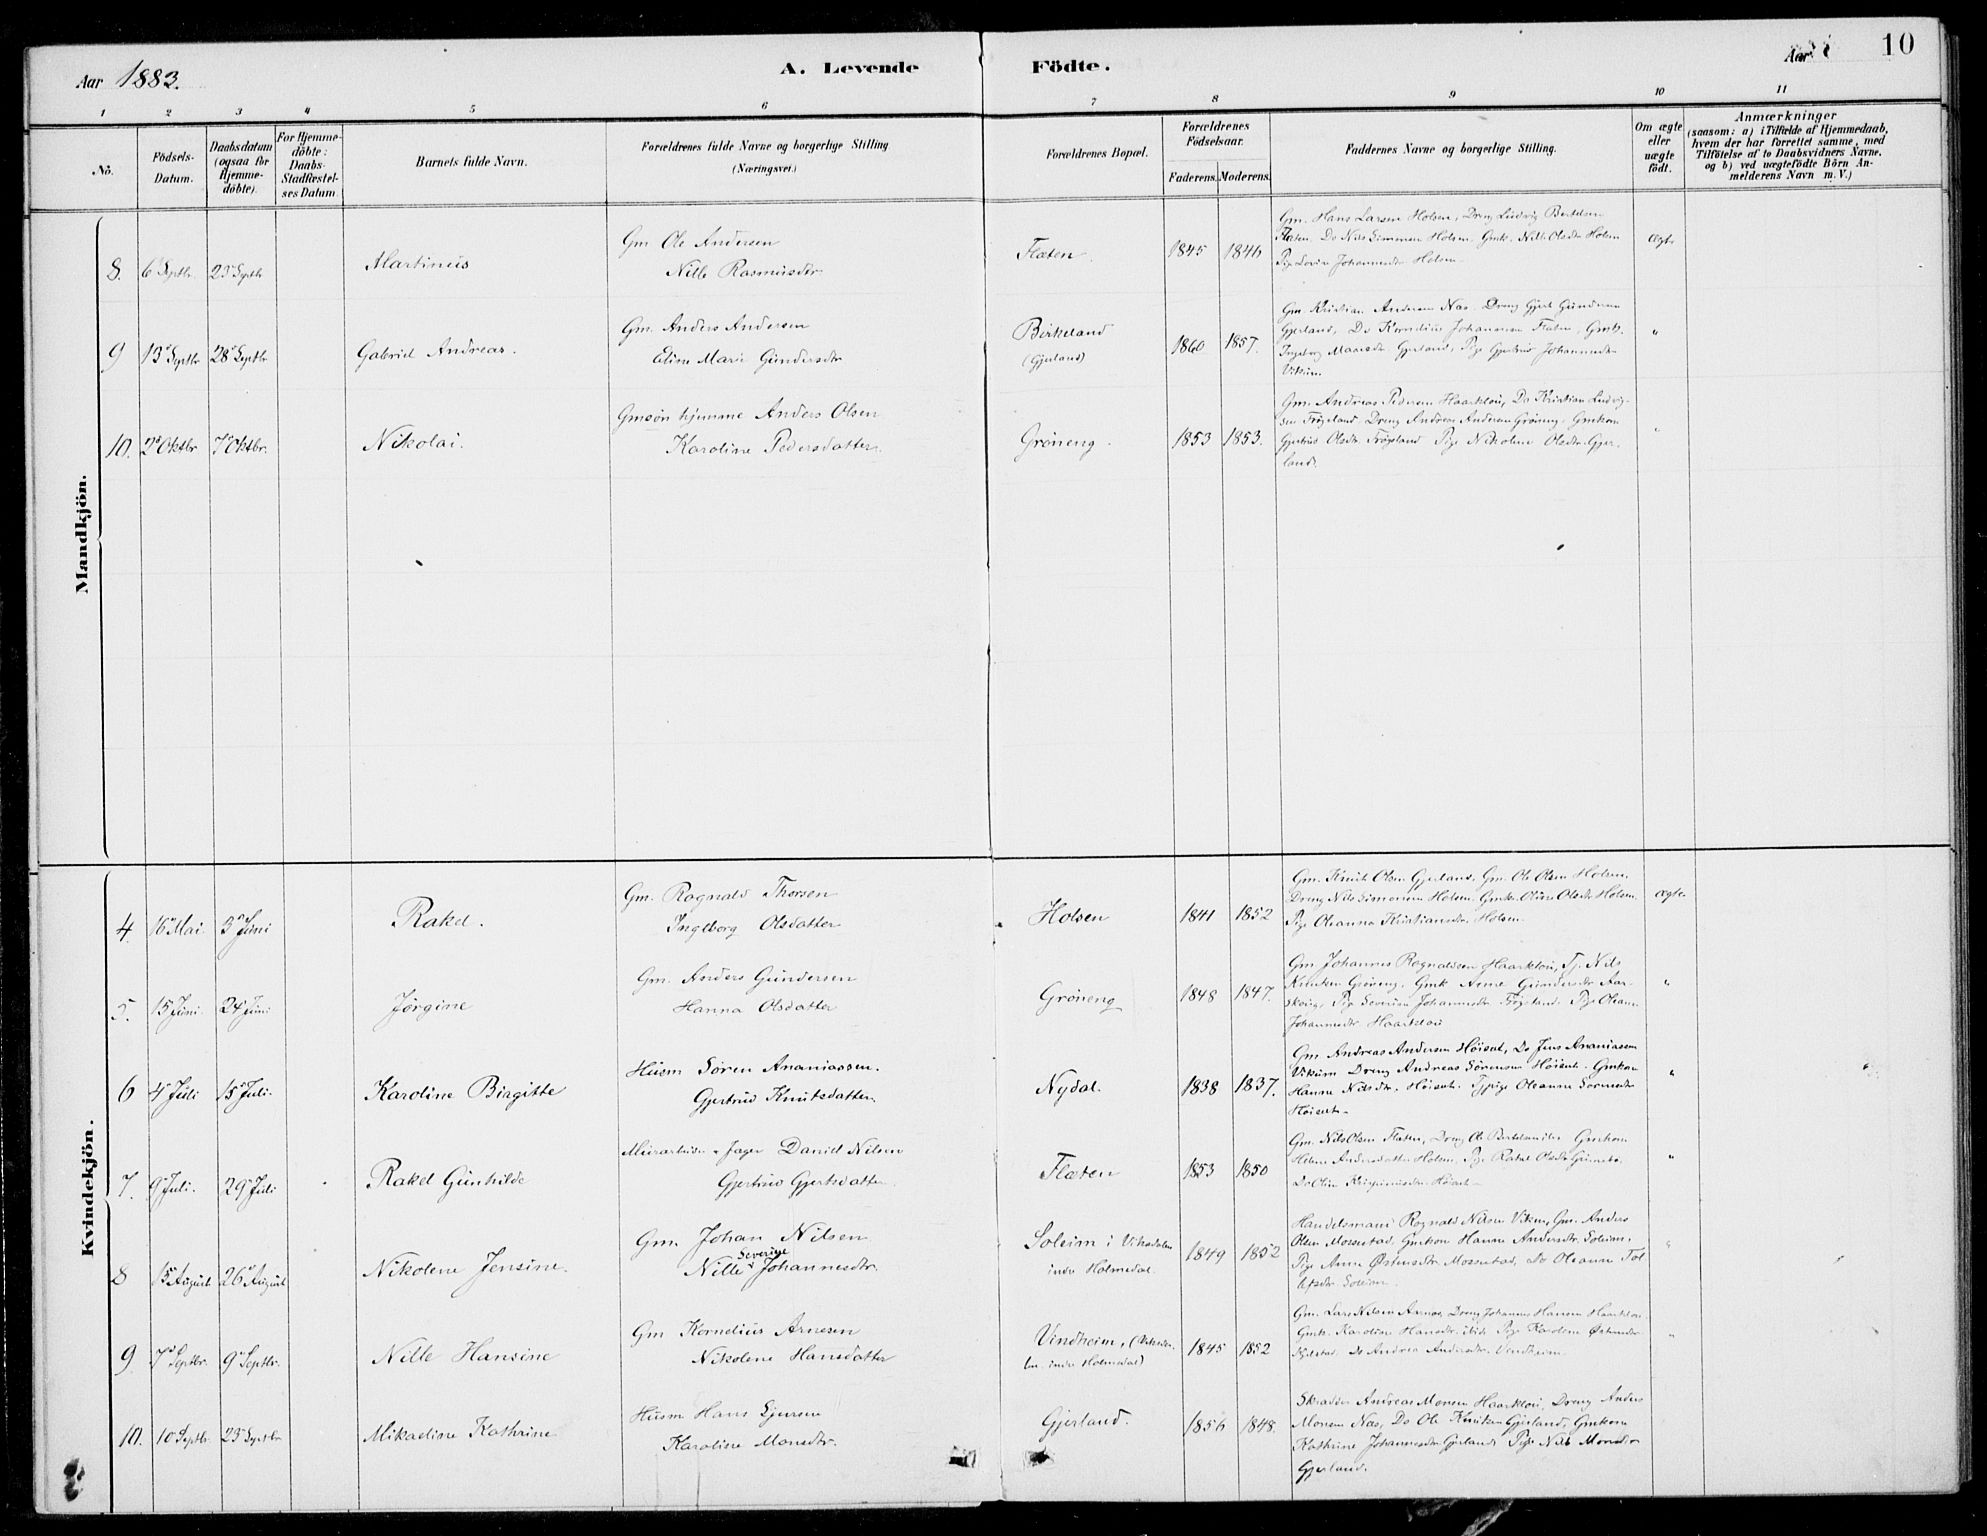 Aar 1883.
A. Levende
Födte.
Aar
10
1
2
3
4
5
6
7
8
9
10
11
No.
Födsels-
Datum.
Daabsdatum
(ogsaa for
Hjemme-
döbte).
For Hjemme-
döbte:
Daabs-
Stadfæstel-
ses Datum.
Barnets fulde Navn.
Forældrenes fulde Navne og borgerlige Stilling
(Næringsvei.)
Forældrenes Bopæl.
Forældrenes
Födselsaar.
Faderens. Moderens.
Faddernes Navne og borgerlige Stilling.
Om ægte
eller
uægte
født.
Anmærkninger
(saasom: a) i Tilfælde af Hjemmedaab,
hvem der har forrettet samme, med
Tilföielse af to Daabsvidners Navne.
og b) ved uægtefödte Börn An-
melderens Navn m. V.)
Mandkjön.
8. 6 Septbr. 23 Septbr Martinus
Gm Ole Andersen
Nille Rasmusdtr.
Flæten. 1845 1846
Gm. Hans Larsen Holsen, Dreng Ludvig Bertelsen
Flæten, Do Nils Simonsen Holsen, Gmk. Nille Olsdtr Holsen
Pige Lovise Johannesdtr Holsen
ægte
9 13 Septbr 28 Septbr Gabriel Andreas.
Gm. Anders Andersen
Eline Marie Gundersdtr
Birkeland
(Gjerland)
1860 1857.
Gm. Kristian Andersen Nas. Dreng Gjert Gundersen
Gjerland, Do Kornelius Johannesen Flæten, Gmk.
Ingeborg Gjerland, Pige Gjertrud Johannesdtr
Vikum.
"
10. 2 Oktbr 7 Oktbr. Nikolai.
Gmsøn hjemme Anders Olsen
Karoline Pedersdatter
Grøneng. 1853 1853.
Gm. Andreas Pedersen Haarklou, Do Kristian Ludvig-
sen Frøysland Dreng Andreas Andersen Grøneng, Gmkon
Gjertrud Olsdtr. Frøysland Pige Nikoline Olsdtr. Gjer-
land.
"
Kvindekjön.
4. 16 Mai 3 Juni Rakel.
Gm. Rognald Thorsen
Ingeborg Olsdatter
Holsen 1841 1852
Gm. Knut Olsen Gjerland, Gm. Ole Olsen Holsen,
Dreng Nils Simonsen Holsen. Gmk. Oline Olsdtr Holsen
Pige Oleanna Kristiansdtr. Holsen.
ægte
5. 15 Juni 24 Juni Jørgine
Gm. Anders Gundersen
Hanna Olsdatter
Grøneng 1848 1847.
Gm Johannes Rognaldsen Haarklou, Tj. Nils
Knutsen Grøneng. Gmk Anne Gundersdtr Aar-
skoug, Pige Severine Johannesdtr Frøysland. Pige Oleanna
Johannesdtr. Haarklou
"
6 4 Juli 15 Juli. Karoline Birgitte
Husm Søren Ananiassen.
Gjertrud Knutsdatter
Nydal. 1838 1837.
Gm Andreas Andersen Høiset, Do Jens Ananiassen
Vikum Dreng Andreas Sørensen Høiset. Gmkon
Hanne Nilsdtr. Høiset. Tjpige Oleanne Sørensdtr
Høiset
"
7. 9 Juli. 29 Juli Rakel Gunhilde
Murarbeider & Jæger Daniel Nilsen
Gjertrud Gjertsdatter
Flæten 1853 1850
Gm. Nils Olsen Flæten, Dreng Ole Bertelsen Gmkon
Helene Andersdatter Holsen, Pige Rakel Olsdtr
Do Oline Høiset
"
8 15 August 26 August Nikolene Jensine.
Gm. Johan Nilsen
Severine
Nille Johannesdtr.
Soleim i Viksdalen
indre Holmedal. 1849 1852
Handelsmand Rognald Nilsen Vikum, Gm. Anders
Olsen Mossestad, Gmkon Hanne Andersdtr. Soleim,
Pige Anne Østensdtr. Mossestad, Do Oleanne Tol-
lefsdtr Soleim.
"
9. 7 Septbr. 9 Septbr. Nille Hansine
Gm Kornelius Arnesen
Nikolene Hansdatter
Vindheim, (Viksda-
len. indre Holmedal) 1845 1852
Gm. Lars Nilsen Aarnes, Dreng Johannes Hansen Haarklou
Gmk. Karoline Hansdtr ibid. Pige Karolene Østensdtr
Do Andrea Andersdtr. Vindheim.
"
10. 10 Septbr. 23 Septbr Mikaeline Kathrine
Husm Hans
Karoline Monsdtr.
Gjerland. 1856 1848.
Skrædder Andreas Monsen Haarklou. Dreng Anders
Monsen Nas, Do Ole Knutsen Gjerland, Gmkone
Kathrine Johannesdtr Gjerland Pige Nille Monsdtr
Gjerland.